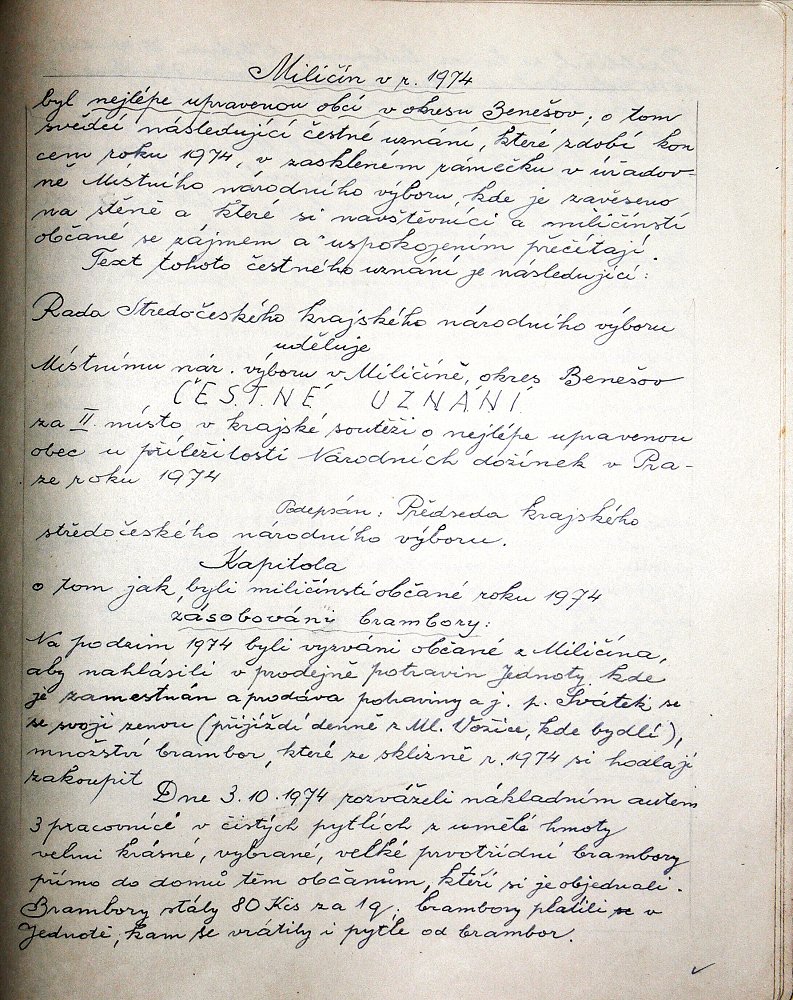 Miličín v r. 1974
byl nejlépe upravenou obcí v okresu Benešov; o tom
svědčí následující čestné uznání, které zdobí kon
cem roku 1974, v zaskleném rámečku v úřadov-
ně Místního národního výboru, kde je zavěseno
na stěně a které si navštěvníci a miličínstí
občané se zájmem a uspokojením přečítají.
Text tohoto čestného uznání je následující:
Rada Středočeského krajského národního výboru
uděluje
Místnímu nár. výboru v Miličíně, okres Benešov
ČESTNÉ UZNÁNÍ
za II. místo v krajské soutěži o nejlépe upravenou
obec u příležitosti Národních dožínek v Pra-
ze roku 1974
Podepsán: Předseda krajského
středočeského národního výboru.
Kapitola
o tom jak byli miličínstí občané roku 1974
zásobováni brambory:
Na podzim 1974 byli vyzváni občané z Miličína,
aby nahlásili v prodejně potravin Jednoty, kde
je zamestnán a prodáva pohaviny a j. p. Svátek se
se svojí zenou (přijíždí denně z Ml. Vožice, kde bydlí),
množství brambor, které ze sklizně r. 1974 si hodlají
zakoupit
Dne 3.10.1974 rozváželi nákladním autem
3 pracovníce v čistých pytlích z umělé hmoty
velmi krásné, vybrané, velké prvotřídní brambory
přímo do domů těm občanům, kteří si je objednali.
Brambory stály 80 Kčs za 1q. brambory platili se v
Jednotě, kam se vrátily i pytle od brambor.